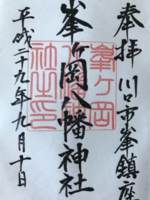 奉拝 川口市峯鎮座
峯ヶ岡八幡神社
峯ヶ岡八幡神社之印
平成二十九年九月十日